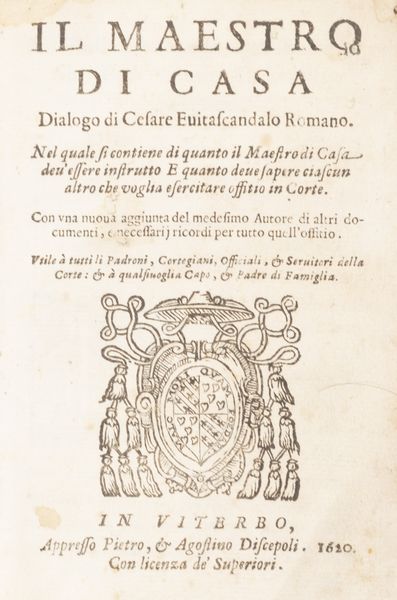 IL MAESTRO
DI CASA
Dialogo di Cesare Evitascandalo Romano.
Nel quale si contiene di quanto il Maestro di Casa
deu'essère instrutto E quanto deue sapere ciascun
altro che voglia esercitare offitio in Corte.
Con vna nuoua aggiunta del medesimo Autore di altri do-
cumenti, e necessarij ricordi per tutto quell'offitio.
Vtile à tutti li Padroni, Cortegiani, Officiali, & Seruitori della
Corte: & à qualsiuoglia Capo, & Padre di Famiglia.
IN VITERBO,
Appresso Pietro, & Agostino Discepoli. 1620.
Con licenza de' Superiori.